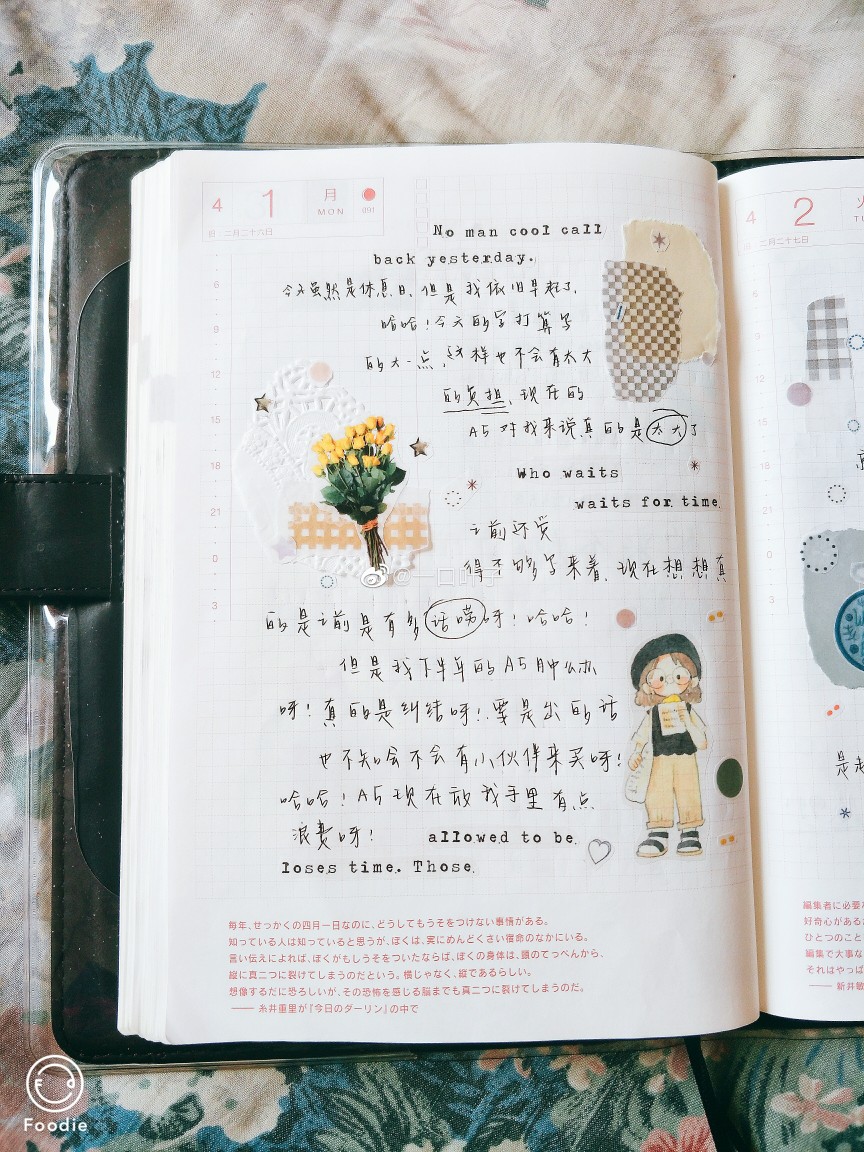 4 1 月 MON 091
旧 二月二十六日
No man cool call
back yesterday.
今天虽然是休息日,但是我依旧早起了,
哈哈!今天的字打算写
的大一点,这样也不会有太大
的负担,现在的
A5对我来说真的是太大了
Who waits
waits for time.
之前还觉
得不够写来着,现在想想真
的是之前是有多话唠呀!哈哈!
但是我下半年的A5肿么办
呀!真的是纠结呀!要是出的话
也不知会不会有小伙伴来买呀!
哈哈!A5现在放我手里有点
浪费呀!
allowed to be.
loses time. Those.
6
9
12
15
18
21
0
3
@一口叶子
毎年、せっかくの四月一日なのに、どうしてもうそをつけない事情がある。
知っている人は知っていると思うが、ぼくは、実にめんどくさい宿命のなかにいる。
言い伝えによれば、ぼくがもしうそをついたならば、ぼくの身体は、頭のてっぺんから、
縦に真二つに裂けてしまうのだという。横じゃなく、縦であるらしい。
想像するだに恐ろしいが、その恐怖を感じる脳までも真二つに裂けてしまうのだ。
―― 糸井重里が『今日のダーリン』の中で
4 2 火
旧 二月二十七日
6
9
12
15
18
21
0
3
是
編集者に必要な
好奇心がある
ひとつのこと
編集で大事な
それはやっぱ
―― 新井敏
Foodie